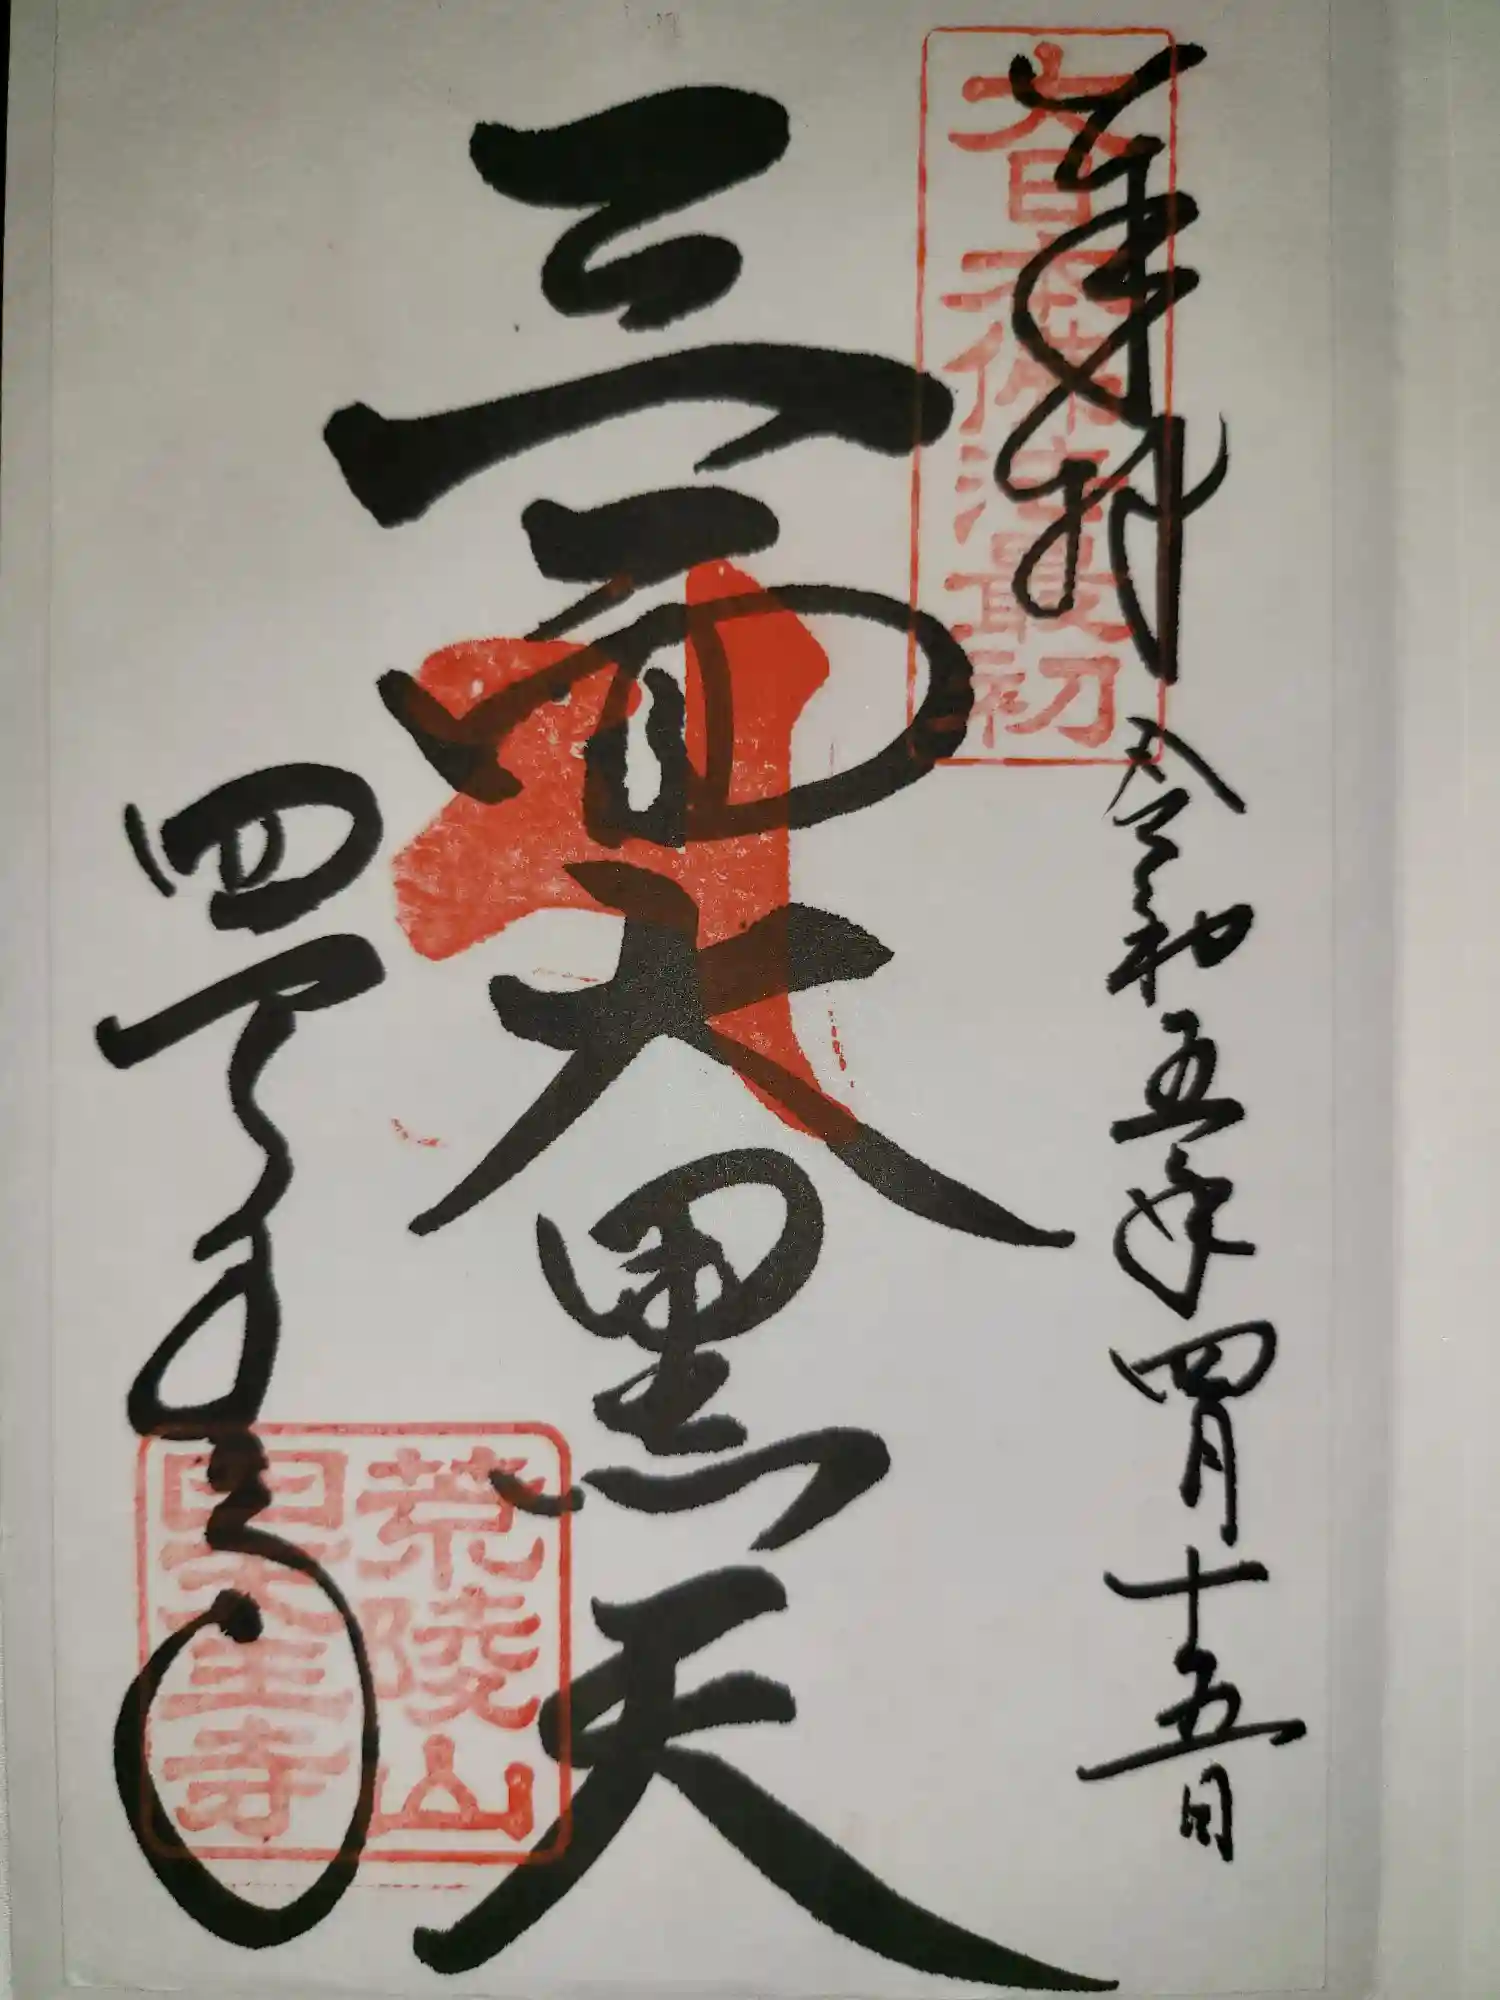 奉拝
令和五年四月十五日
大日本佛法最初
三面大黒天
四天王寺
荒陵山
四天王寺